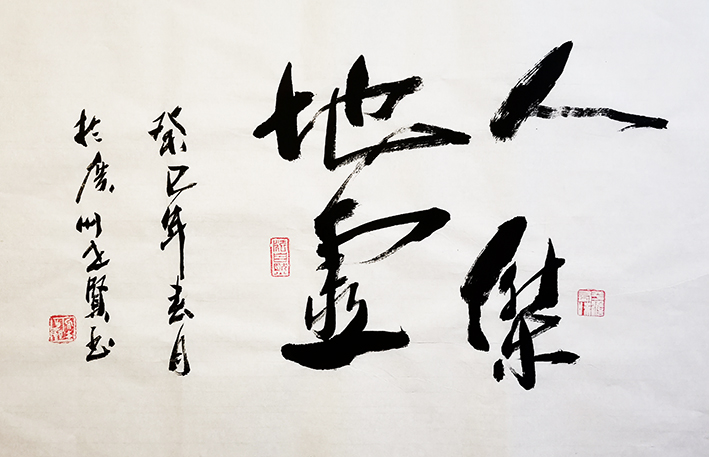 人傑
地靈
癸巳年春月
於廣州賢